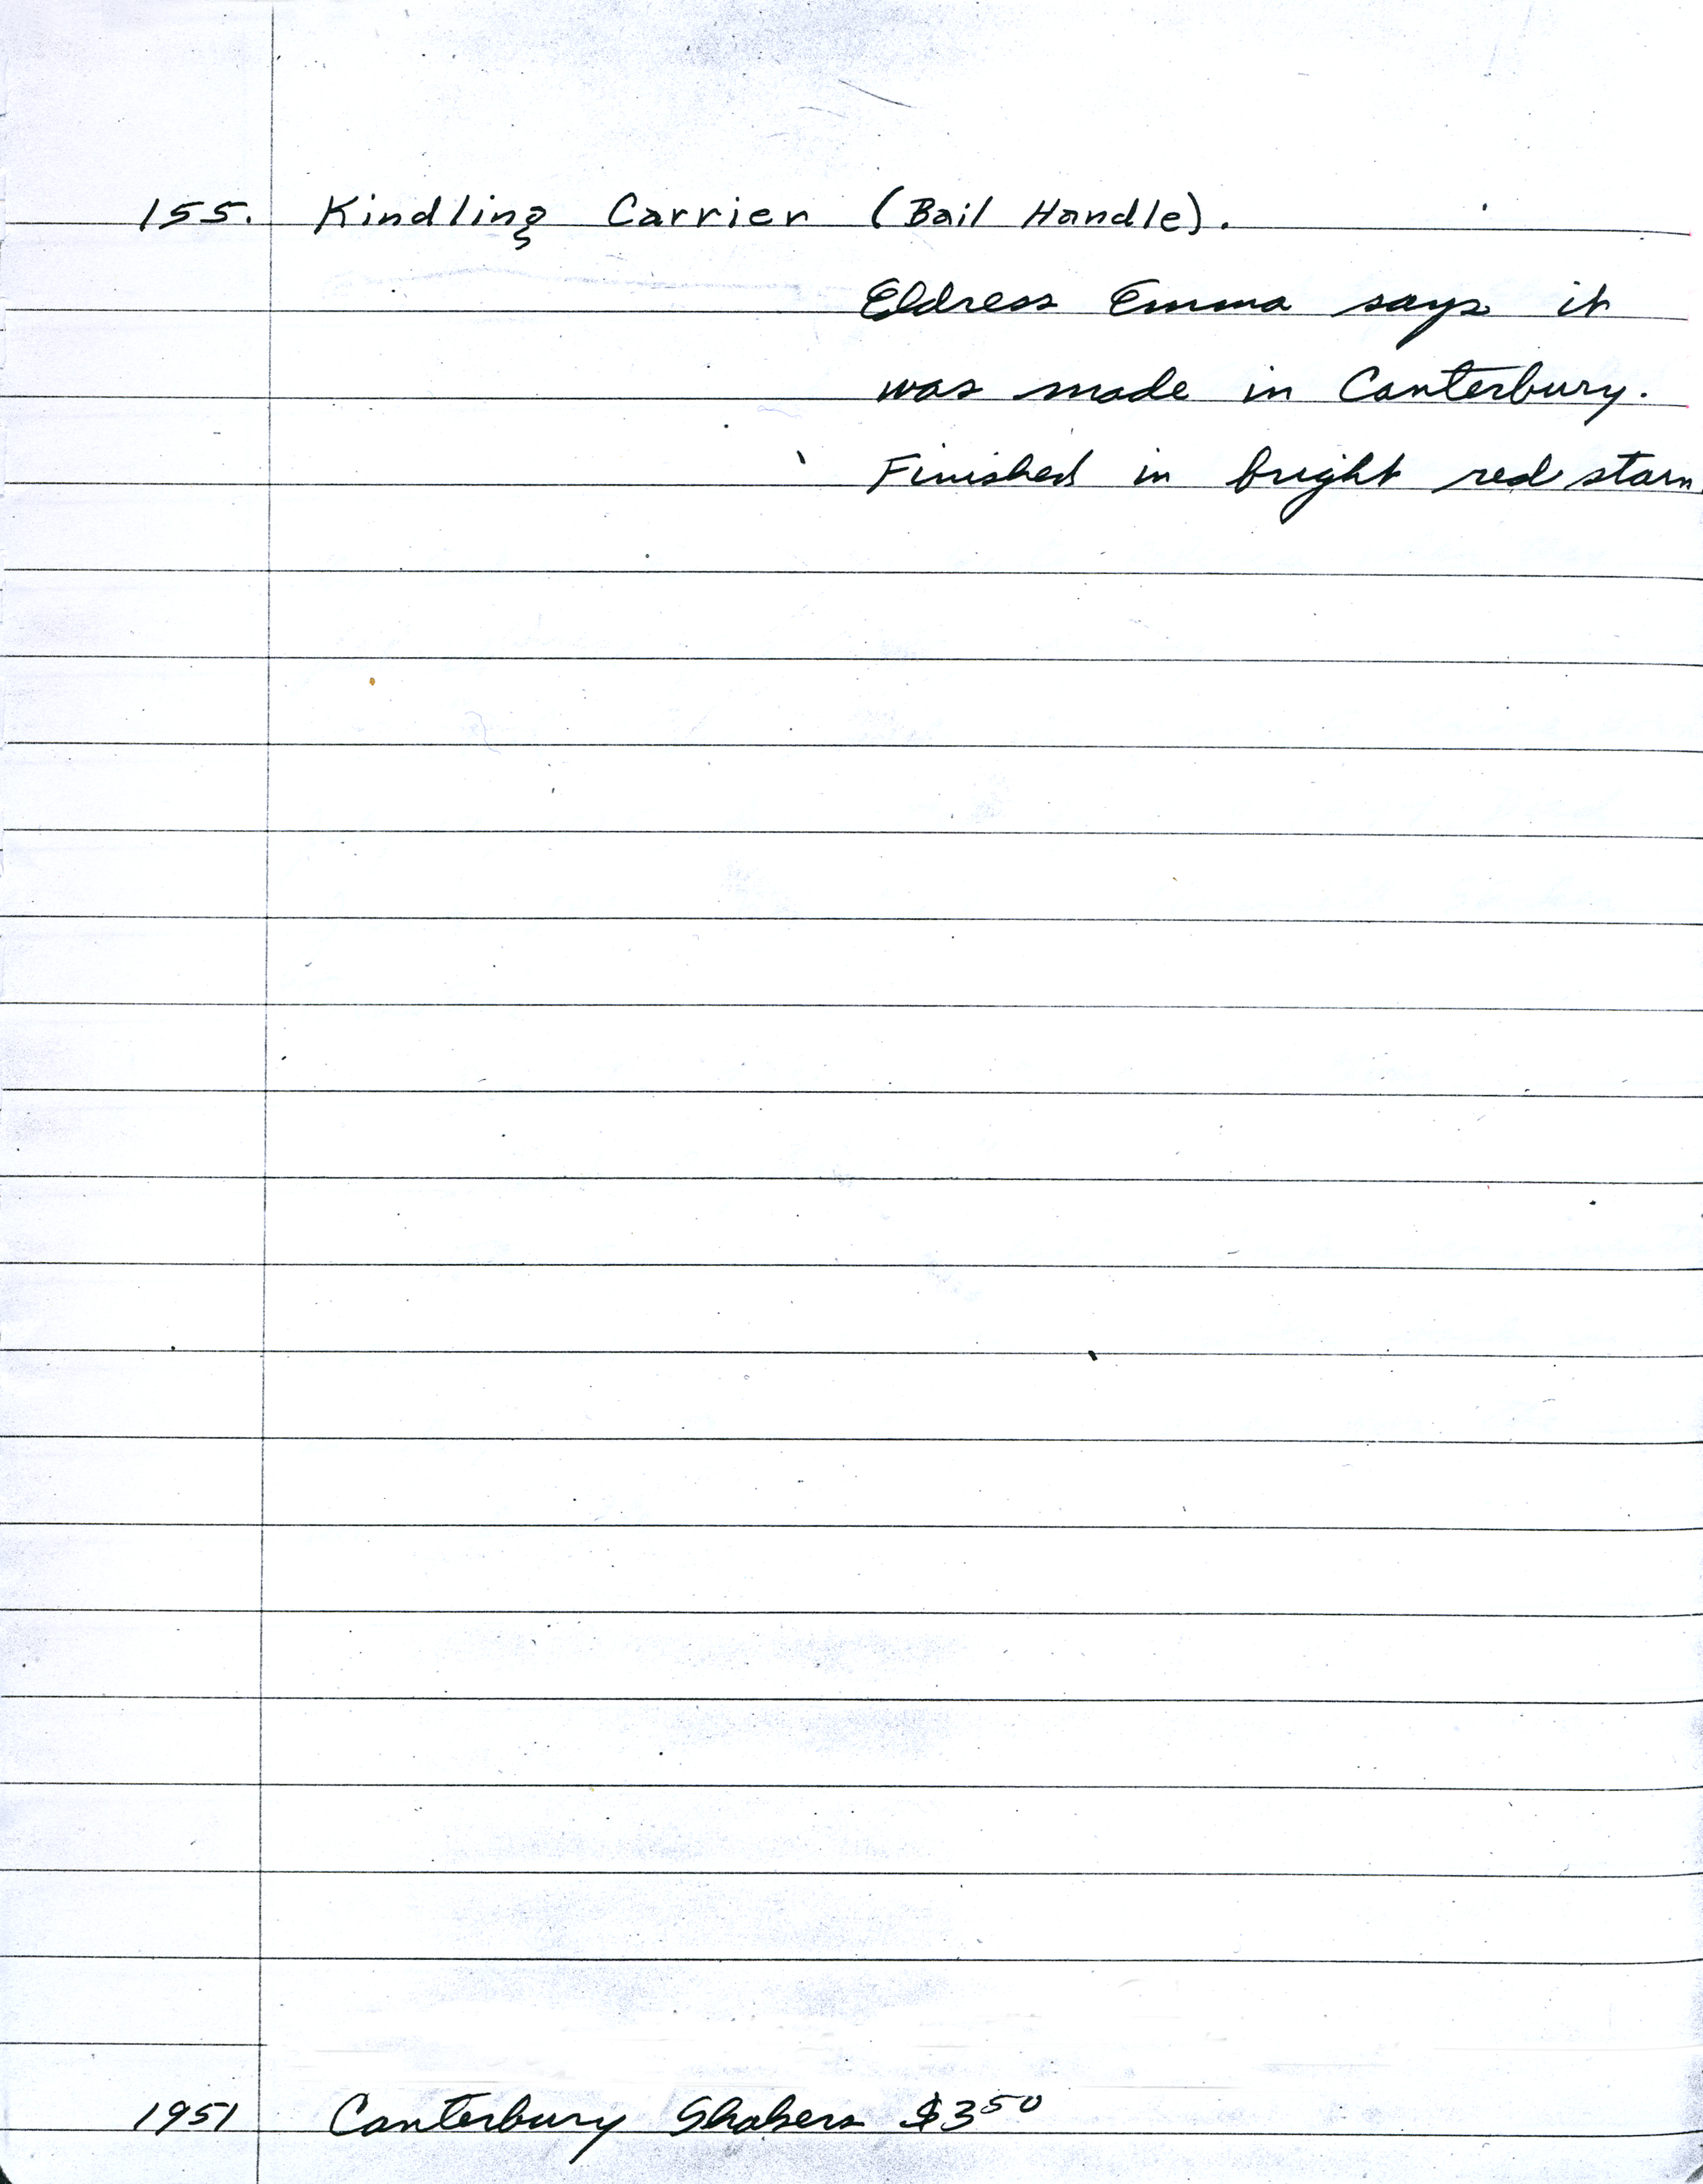 155. Kindling Carrier (Bail Handle).
Eldress Emma says it
was made in Canterbury.
Finished in bright red stain.
1951 Canterbury Shakers $3.50